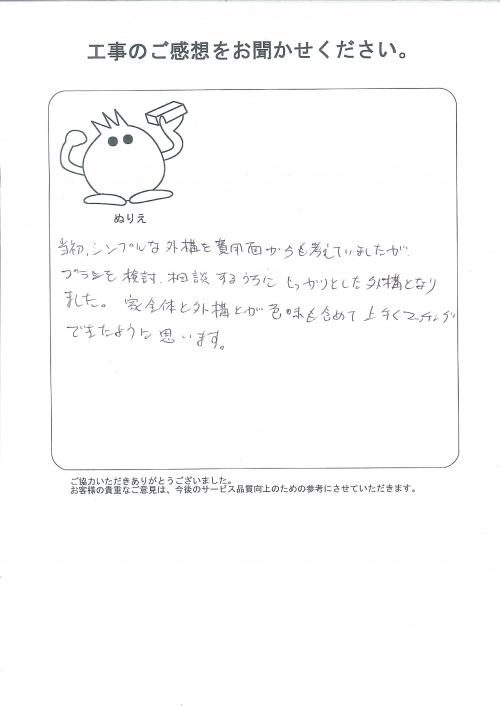 工事のご感想をお聞かせください。
ぬりえ
当初、シンプルな外構を費用面からも考えていましたが、
プランを検討、相談するうちに しっかりとした外構となり
ました。 家全体と外構とが 色味も含めて 上手くマッチング
できたように思います。
ご協力いただきありがとうございました。
お客様の貴重なご意見は、今後のサービス品質向上のための参考にさせていただきます。